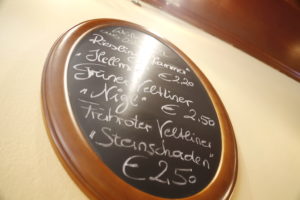 Riesling
"Hellm
€ 2,20
Grüner Veltliner
"Nigl" € 2,50
Frühroter Veltliner
"Steinschaden"
€ 2,50